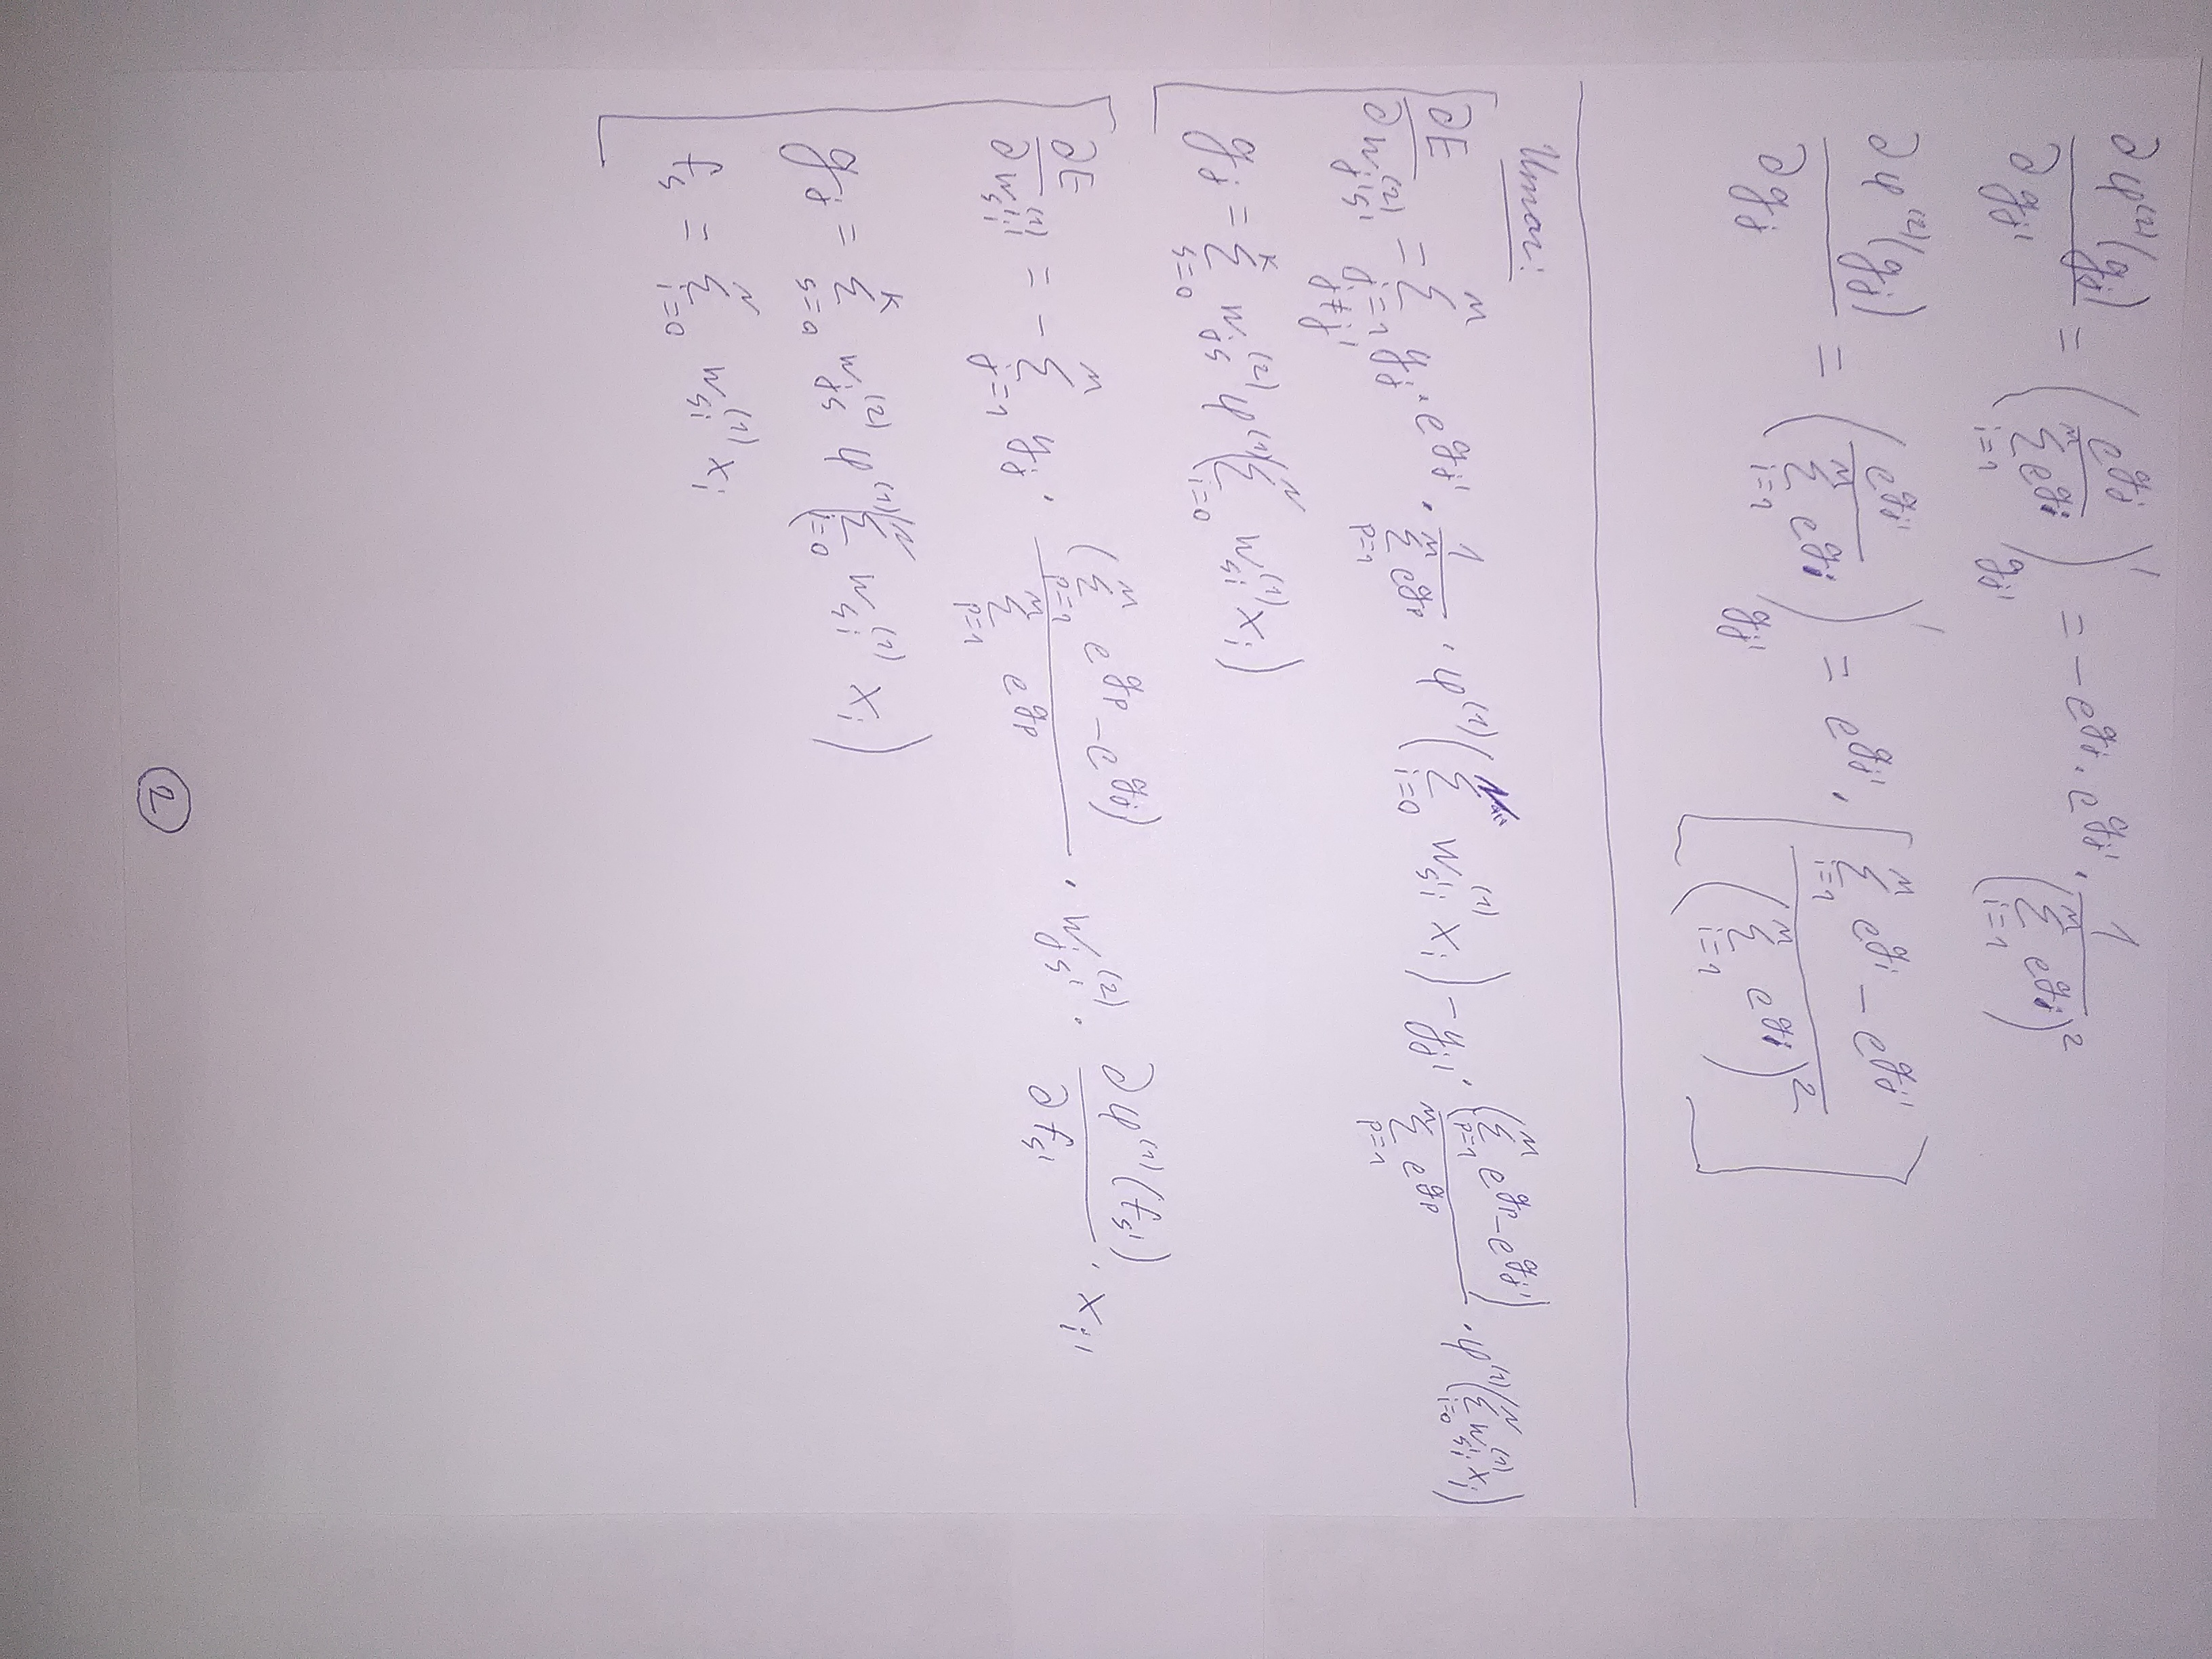 ∂φ^{(2)}(g_j) / ∂g_{j'} = ( e^{g_j} / Σ_{i=1}^{M} e^{g_i} )'_{g_{j'}} = − e^{g_j} · e^{g_{j'}} · 1 / ( Σ_{i=1}^{M} e^{g_i} )^2
∂φ^{(2)}(g_j) / ∂g_j = ( e^{g_{j'}} / Σ_{i=1}^{M} e^{g_i} )'_{g_{j'}} = e^{g_{j'}} · [ ( Σ_{i=1}^{M} e^{g_i} − e^{g_{j'}} ) / ( Σ_{i=1}^{M} e^{g_i} )^2 ]
Итог:
∂E / ∂w_{j's'}^{(2)} = Σ_{j=1, j≠j'}^{M} y_j · e^{g_{j'}} · 1 / Σ_{p=1}^{M} e^{g_p} · φ^{(1)}( Σ_{i=0}^{N} w_{s'i}^{(1)} x_i ) − y_{j'} · ( Σ_{p=1}^{M} e^{g_p} − e^{g_{j'}} ) / Σ_{p=1}^{M} e^{g_p} · φ^{(1)}( Σ_{i=0}^{N} w_{s'i}^{(1)} x_i )
g_j = Σ_{s=0}^{K} w_{js}^{(2)} φ^{(1)}( Σ_{i=0}^{N} w_{si}^{(1)} x_i )
∂E / ∂w_{s'i'}^{(1)} = − Σ_{j=1}^{M} y_j · ( Σ_{p=1}^{M} e^{g_p} − e^{g_j} ) / Σ_{p=1}^{M} e^{g_p} · w_{js'}^{(2)} · ∂φ^{(1)}(f_{s'}) / ∂f_{s'} · x_{i'}
g_j = Σ_{s=0}^{K} w_{js}^{(2)} φ^{(1)}( Σ_{i=0}^{N} w_{si}^{(1)} x_i )
f_s = Σ_{i=0}^{N} w_{si}^{(1)} x_i
2